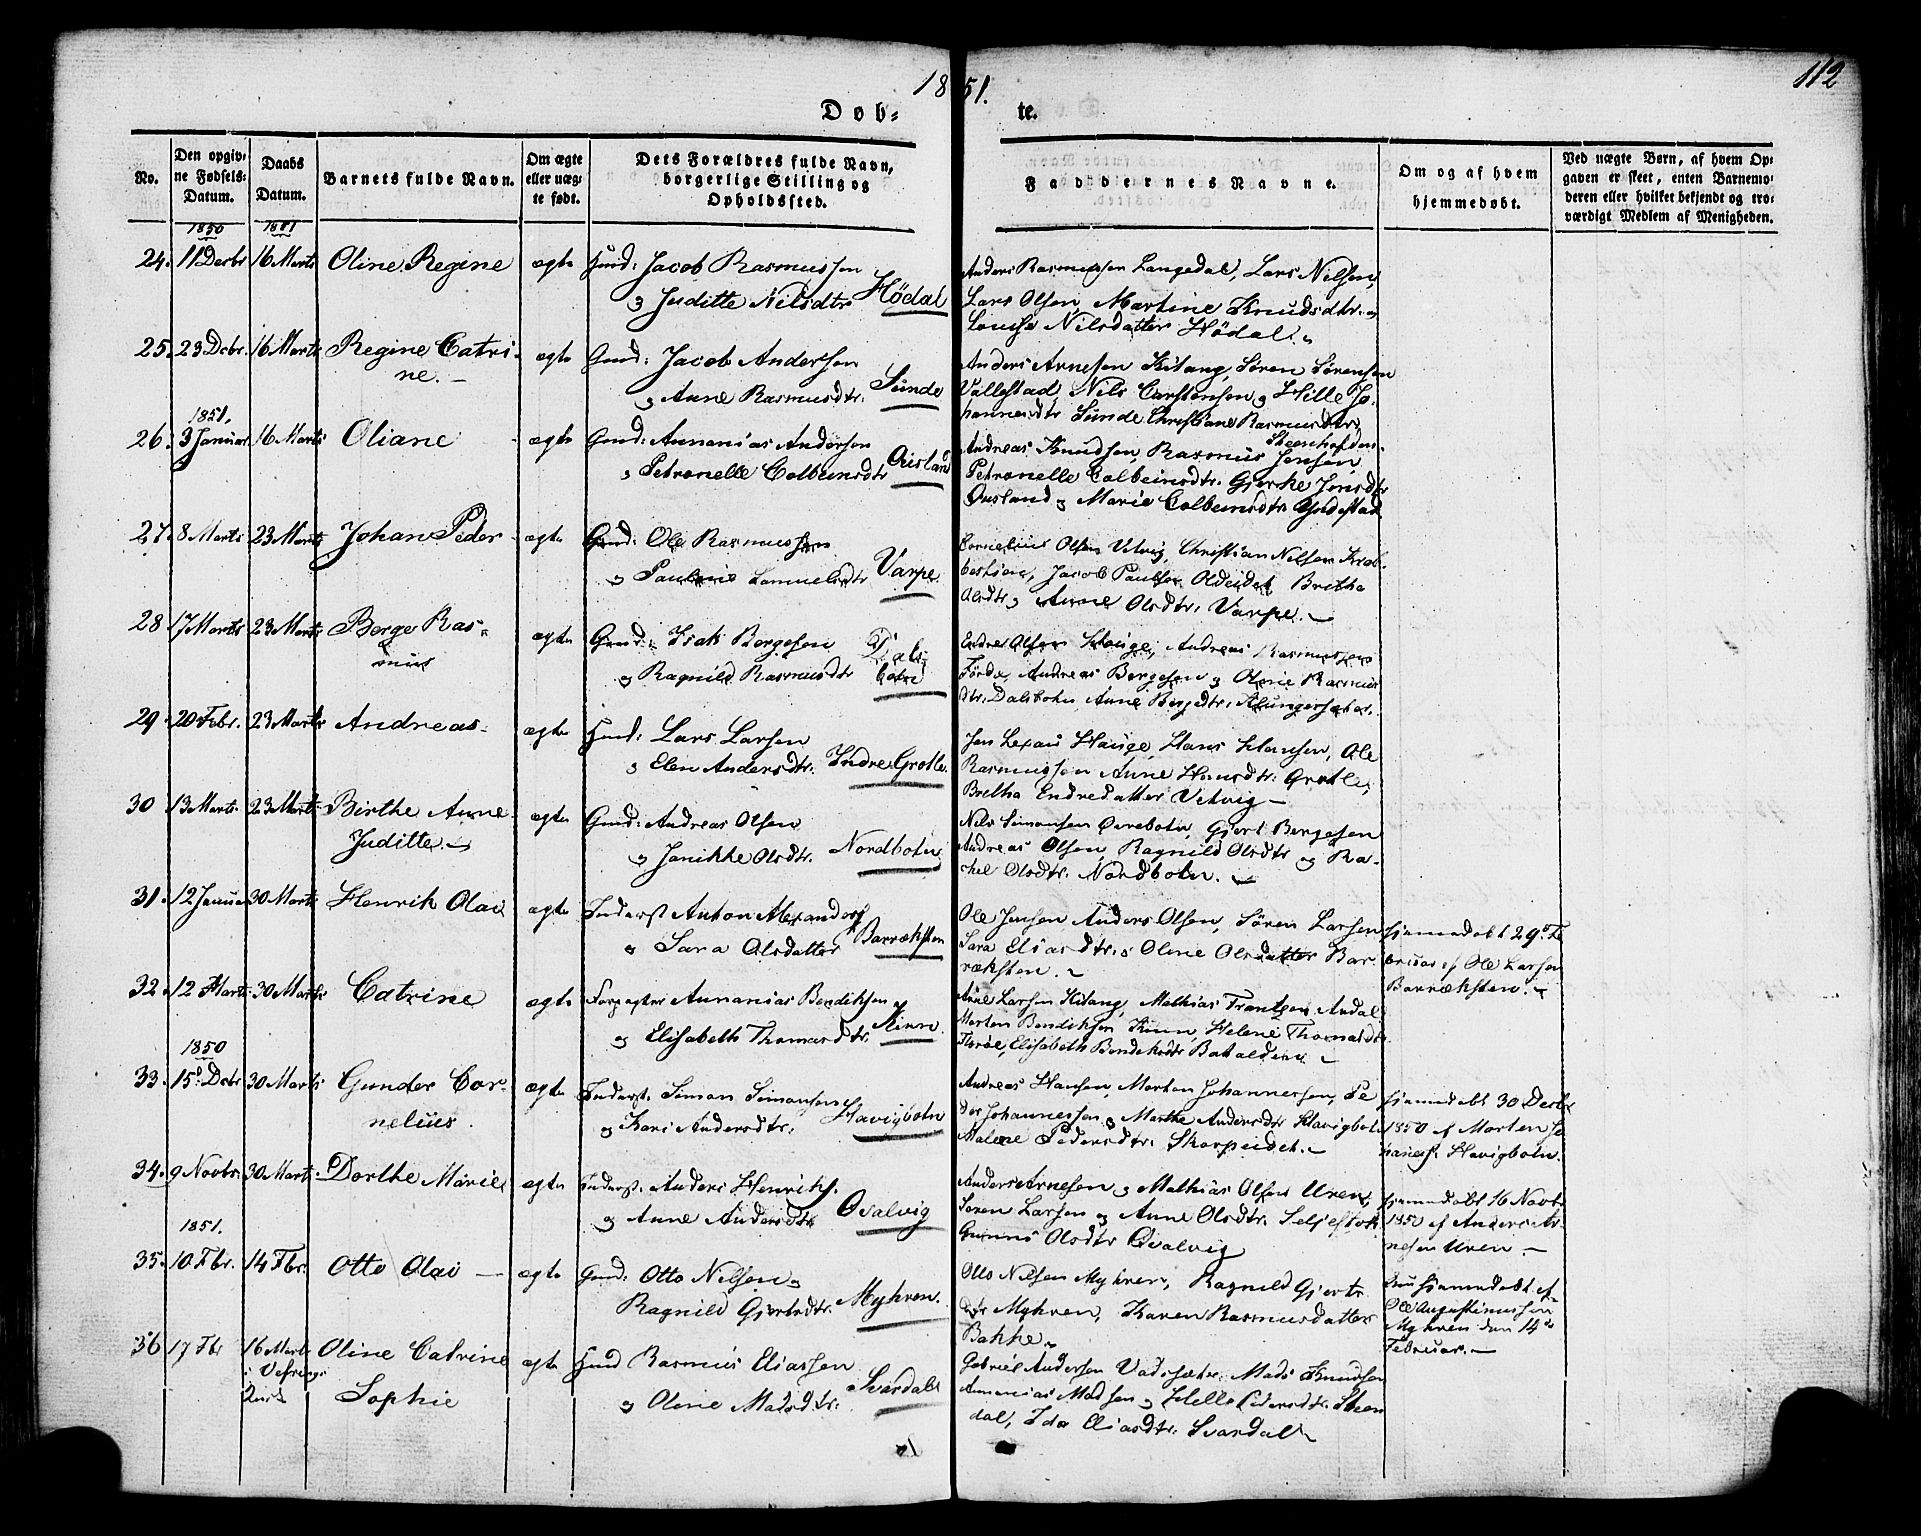 1851.
112
Døbte.
No.
Den opgivne Fødsels-Datum.
Daabs Datum.
Barnets fulde Navn.
Om ægte eller uægte født.
Dets Forældres fulde Navn, borgerlige Stilling og Opholdssted.
Faddernes Navne.
Om og af hvem hjemmedøbt.
Ved uægte Børn, af hvem Opgaven er skeet, enten Barnemoderen eller hvilket bekjendt og troværdigt Medlem af Menigheden.
1850 1851
24. 11 Decbr 16 Marts Oline Regine ægte Huusd: Jacob Rasmussen
og Juditte Nilsdtr Hödal
Anders Rasmussen Langedal, Lars Nilsen,
Lars Olsen, Martine Knudsdtr. og
Lovise Nilsdatter Hödal.
25. 23 Decbr. 16 Marts Regine Catri-
ne. ægte Gmd: Jacob Andersen
og Anne Rasmusdtr. Sunde
Anders Arnesen Kitang, Sören Sörensen
Vallestad, Nils Carstensen og Hille Jo-
hannesdtr Sunde Christiane Rasmusdtr
Steenhofden.
1851.
26. 3 Januar 16 Marts Oliane ægte Gmd: Annanias Andersen
og Petronelle Colbeinsdtr Ousland
Andreas Knudsen, Rasmus Jensen,
Petronelle Colbeinsdtr. Gjerche Jensdtr
Ousland og Marie Colbeinsdtr Yndestad
27. 8 Marts 23 Marts Johan Peder ægte Gmd: Ole Rasmussen
og Pauline Samuelsdtr Varpe
Cornelius Olsen Vetvig, Christian Nilsen Krab-
bestien, Jacob Paulsen Oldeidet Brithe
Olsdtr og Anne Olsdtr. Varpe.
28 17 Marts 23 Marts Berge Ras-
mus ægte Gmd: Isak Bergesen
og Ragnild Rasmusdtr Dals-
botn
Endre Olsen Hauge, Andreas Rasmussen
Förde, Andreas Bergesen og Oline Rasmus
dtr. Dalsbotn Anne Bergsdtr. Klungersæter.
29. 20 Febr. 23 Marts Andreas ægte Huusd: Lars Larsen
og Elen Andersdtr. Indre Grotle.
Jens Lexau Hauge, Hans Hansen, Ole
Rasmussen Anne Hansdtr. Grotle,
Bretha Endredatter Vetvig
30 13 Marts 23 Marts Birthe Anne
Juditte. ægte Gmd: Andreas Olsen
og Janikke Olsdtr. Nordbotn.
Nils Simonsen Övrebotn, Gjert Bergesen
Andreas Olsen Ragnild Olsdtr og Ra-
chel Olsdtr. Nordbotn.
31. 12 Januar 30 Marts Henrik Olai ægte Inderst Anton Alexanders.
og Sara Olsdatter Barræksten
Ole Jensen Anders Olsen, Sören Larsen
Sara Eliasdtr. og Oline Olsdatter Bar-
ræksten.
Hjemmedöbt 29de Fe
bruar af Ole Larsen
Barræksten.
32. 12 Marts 30 Marts Catrine ægte Forpagter Annanias Bendiksen
og Elisabeth Thomasdtr. Kinn
Arne Larsen Kitang, Mathias Frantzen Andal
Morten Bendiksen Kinn, Helene Thomasdtr
Elisabeth Bendiksdtr Batalden
1850
33. 15de Decbr 30 Marts Gunder Cor-
nelius. ægte Inderst. Simon Simonsen
og Kari Andersdtr. Havigbotn
Andreas Hansen, Morten Johannessen, Pe
der Johannessen og Marthe Andersdtr Havigbotn
Malene Pedersdtr. Skorpeidet.
Hjemmedöbt 30 Decbr
1850 af Morten Jo
hannes. Havigbotn.
34. 9 Novbr. 30 Marts Dorthe Marie ægte Inderst. Anders Henriks.
og Anne Andersdtr Qvalvig
Anders Arnesen og Mathias Olsen Uren,
Sören Larsen og Anne Olsdtr.
Olsdtr Qvalvig
Hjemmedöbt 16 Novbr
1850 af Anders Ar
nesen Uren.
1851.
35. 10 Fbr. 14 Fbr. Otto Olai ægte Gmd: Otto Nilsen og
Ragnild Gjertsdtr. Myhren.
Otto Nilsen Myhren, Ragnild Gjerts
dtr Myhren, Karen Rasmusdatter
Bakke.
Hjemmedöbt af
Ole Augustinussen
Myhren den 14de
Februar.
36 17 Fbr 16 Marts
i Vefrings
Oline Catrine
Sophie ægte Huusd Rasmus Eliassen
og Oline Madsdtr. Svardal
Gabriel Andersen Vadsæter. Mads Knudsen
Annanias Madsen og Helle Pedersdtr. Steen
dal, Ida Eliasdtr. Svardal